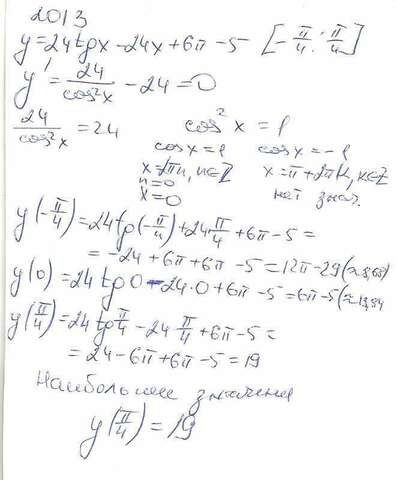 2013
y=24tgx-24x+6π-5 [-π/4; π/4]
y'=24/cos²x-24=0
24/cos²x=24 cos²x=1
cosx=1 cosx=-1
x=2πn, n∈Z x=π+2πk, k∈Z
n=0 нет знач.
x=0
y(-π/4)=24tg(-π/4)+24π/4+6π-5=
=-24+6π+6π-5=12π-29(≈8,68)
y(0)=24tg0-24·0+6π-5=6π-5(≈13,84
y(π/4)=24tgπ/4-24π/4+6π-5=
=24-6π+6π-5=19
Наибольшее значение
y(π/4)=19